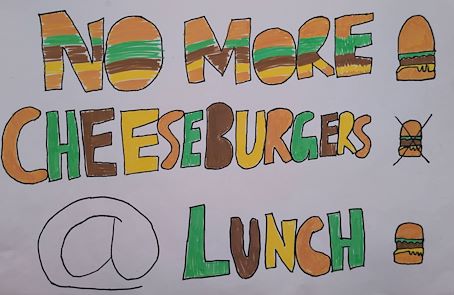 NO MORE
CHEESEBURGERS
@ LUNCH